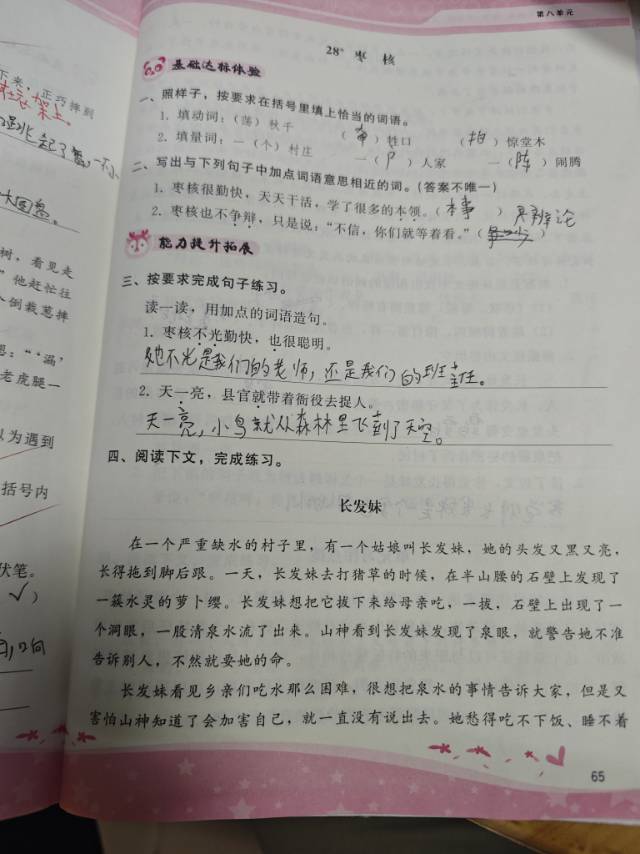 第八单元
28* 枣 核
基础达标体验
一、照样子，按要求在括号里填上恰当的词语。
1. 填动词：（荡）秋千 （牵）牲口 （拍）惊堂木
2. 填量词：一（个）村庄 一（户）人家 一（阵）闹腾
二、写出与下列句子中加点词语意思相近的词。（答案不唯一）
1. 枣核很勤快，天天干活，学了很多的本领。（本事）
2. 枣核也不争辩，只是说：“不信，你们就等着看。”（争吵）
能力提升拓展
三、按要求完成句子练习。
读一读，用加点的词语造句。
1. 枣核不光勤快，也很聪明。
她不光是我们的老师，还是我们的班主任。
2. 天一亮，县官就带着衙役去捉人。
天一亮，小鸟就从森林里飞到了天空。
四、阅读下文，完成练习。
长发妹
在一个严重缺水的村子里，有一个姑娘叫长发妹，她的头发又黑又亮，
长得拖到脚后跟。一天，长发妹去打猪草的时候，在半山腰的石壁上发现了
一簇水灵的萝卜缨。长发妹想把它拔下来给母亲吃，一拔，石壁上出现了一
个洞眼，一股清泉水流了出来。山神看到长发妹发现了泉眼，就警告她不准
告诉别人，不然就要她的命。
长发妹看见乡亲们吃水那么困难，很想把泉水的事情告诉大家，但是又
害怕山神知道了会加害自己，就一直没有说出去。她愁得吃不下饭、睡不着
65
下来，正巧摔到
树，看见走
”他赶忙往
倒栽葱摔
思：“‘漏’
老虎腿一
以为遇到
括号内
伏笔。